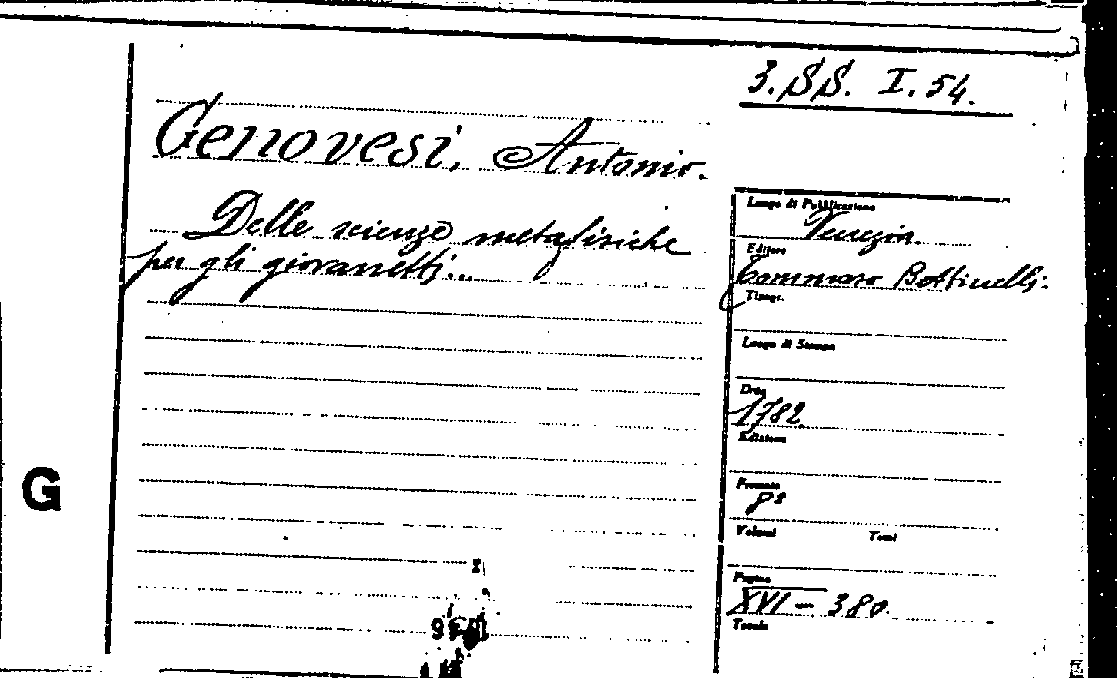 3.SS. I.54.
Genovesi, Antonio.
Delle scienze metafisiche
per gli giovanetti...
G
Luogo di Pubblicazione
Venezia.
Editore
Tommaso Bettinelli.
Tipogr.
Luogo di Stampa
Data
1782
Edizione
Formato
8º
Volumi Tomi
Pagine
XVI - 380.
Tavole